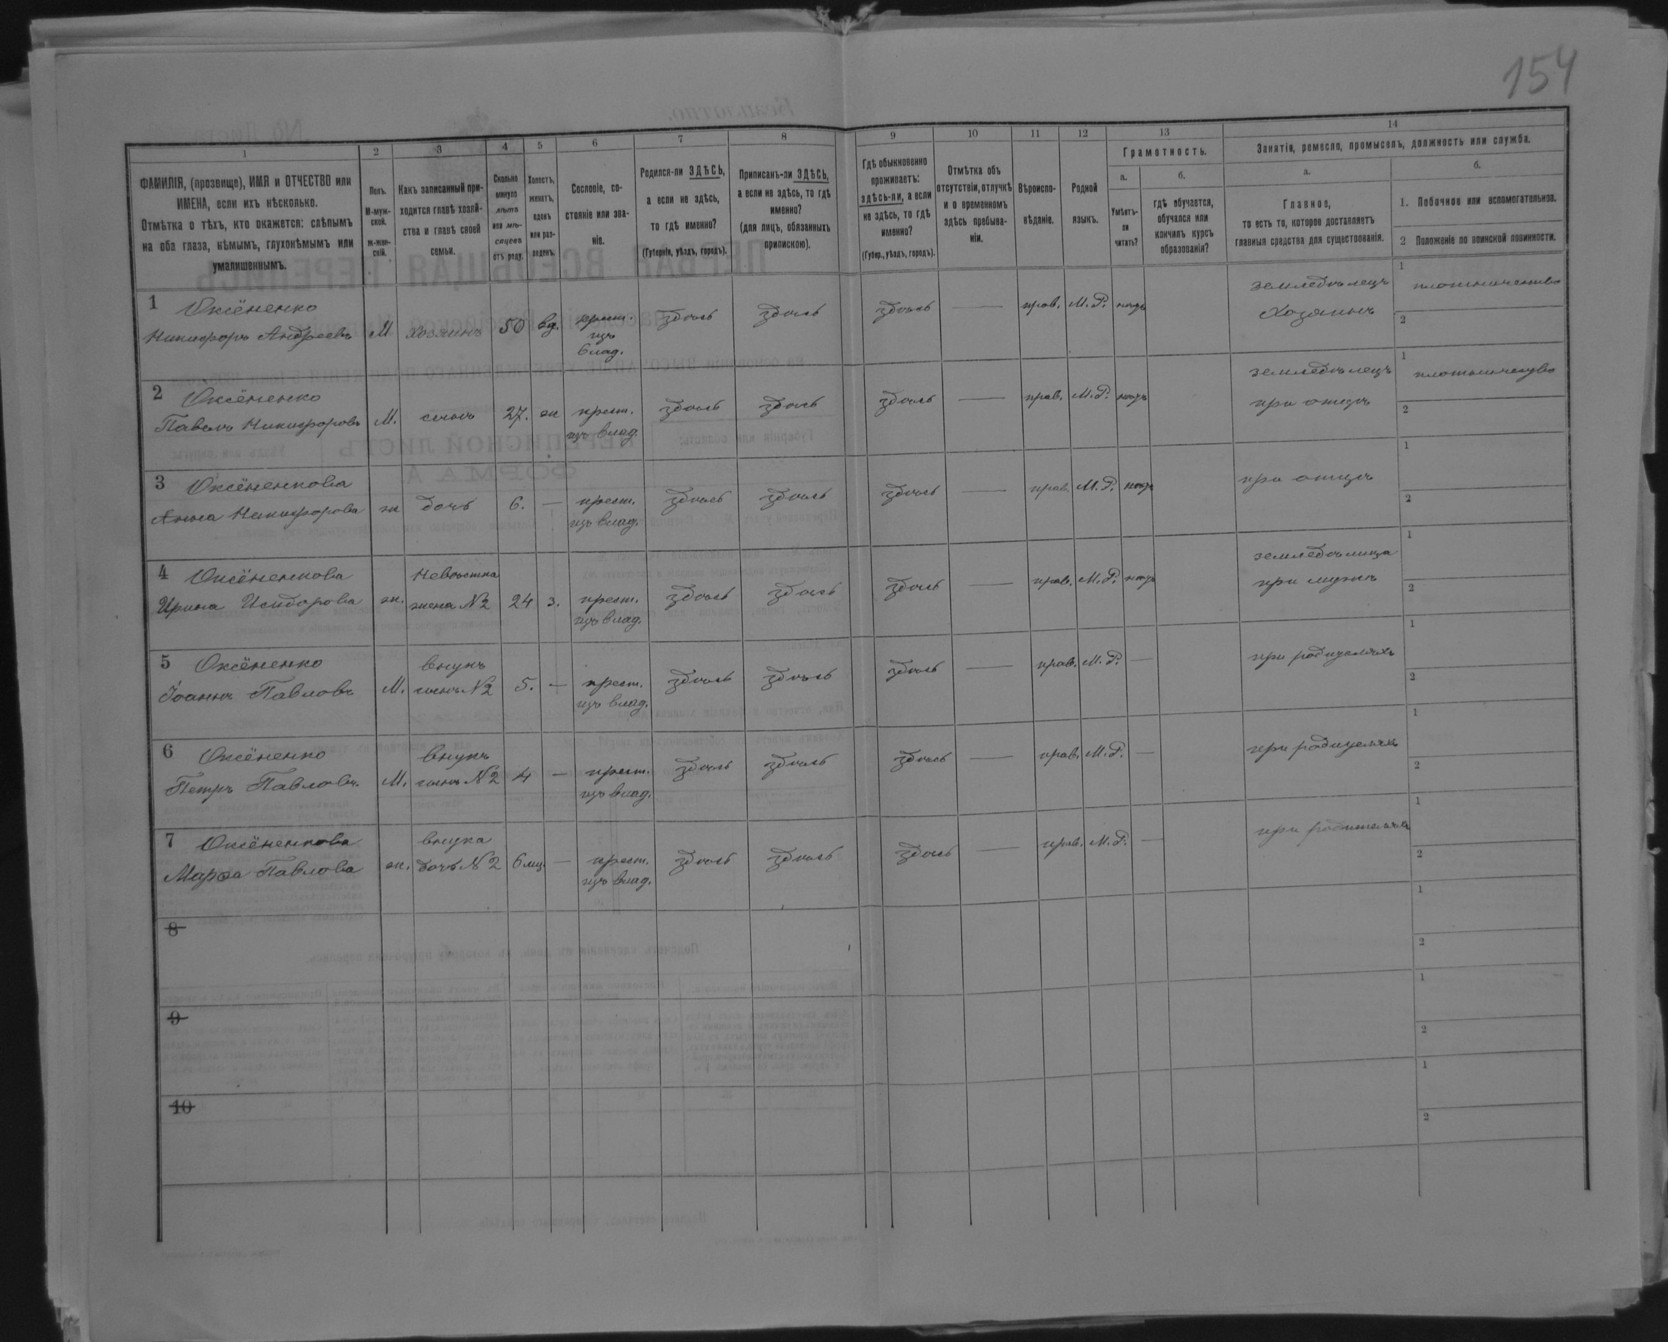 154
1
2
3
4
5
6
7
8
9
10
11
12
13
14
ФАМИЛІЯ, (прозвище), ИМЯ и ОТЧЕСТВО или
ИМЕНА, если ихъ нѣсколько.
Отмѣтка о тѣхъ, кто окажется: слѣпымъ
на оба глаза, нѣмымъ, глухонѣмымъ или
умалишеннымъ.
Полъ.
М-муж-
ской.
ж-жен-
скій.
Какъ записанный при-
ходится главѣ хозяй-
ства и главѣ своей
семьи.
Сколько
минуло
лѣтъ
или мѣ-
сяцевъ
отъ роду.
Холостъ,
женатъ,
вдовъ
или раз-
веденъ.
Сословіе, со-
стояніе или зва-
ніе.
Родился-ли ЗДѢСЬ,
а если не здѣсь,
то гдѣ именно?
(Губернія, уѣздъ, городъ).
Приписанъ-ли ЗДѢСЬ,
а если не здѣсь, то гдѣ
именно?
(для лицъ, обязанныхъ
припискою).
Гдѣ обыкновенно
проживаетъ:
здѣсь-ли, а если
не здѣсь, то гдѣ
именно?
(Губер., уѣздъ, городъ).
Отмѣтка объ
отсутствіи, отлучкѣ
и о временномъ
здѣсь пребыва-
ніи.
Вѣроиспо-
вѣданіе.
Родной
языкъ.
Грамотность.
а.
Умѣетъ-
ли
читать?
б.
гдѣ обучается,
обучался или
кончилъ курсъ
образованія?
Занятія, ремесло, промыселъ, должность или служба.
а.
Главное,
то есть то, которое доставляетъ
главныя средства для существованія.
б.
1. Побочное или вспомогательное.
2 Положеніе по воинской повинности.
1 Оксёненко
Никифоръ Андреевъ М хозяинъ 50 вд. крест. изъ влад. здѣсь здѣсь здѣсь — прав. М.Р. нѣтъ земледѣлецъ хозяинъ 1 плотничество 2
2 Оксёненко
Павелъ Никифоровъ М. сынъ 27. ж крест. изъ влад. здѣсь здѣсь здѣсь — прав. М.Р. нѣтъ земледѣлецъ при отцѣ 1 плотничество 2
3 Оксёненкова
Анна Никифорова ж дочь 6. — крест. изъ влад. здѣсь здѣсь здѣсь — прав. М.Р. нѣтъ при отцѣ 1 2
4 Оксёненкова
Ирина Исидорова ж. невѣстка жена №2 24 з. крест. изъ влад. здѣсь здѣсь здѣсь — прав. М.Р. нѣтъ земледѣлица при мужѣ 1 2
5 Оксёненко
Іоаннъ Павловъ М. внукъ сынъ №2 5. — крест. изъ влад. здѣсь здѣсь здѣсь — прав. М.Р. — при родителяхъ 1 2
6 Оксёненко
Петръ Павловъ. М. внукъ сынъ №2 4 — крест. изъ влад. здѣсь здѣсь здѣсь — прав. М.Р. — при родителяхъ 1 2
7 Оксёненкова
Марѳа Павлова ж. внучка дочь №2 6 мц. — крест. изъ влад. здѣсь здѣсь здѣсь — прав. М.Р. — при родителяхъ 1 2
8 1 2
9 1 2
10 1 2